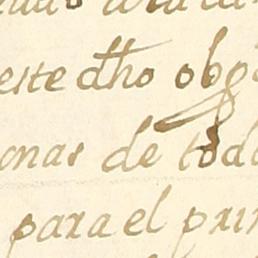 este dho obg
onas de toda
para el prin